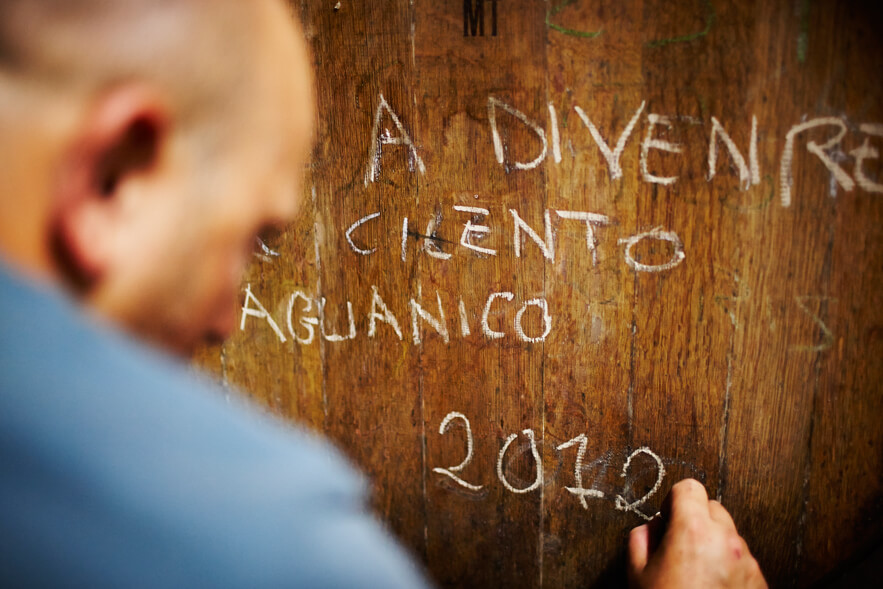 MT
A DIVENRE
CILENTO
AGLIANICO
2012